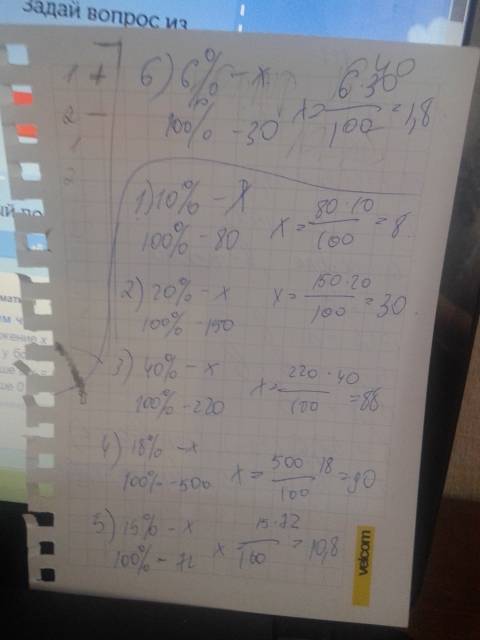 Задай вопрос из
1 +
2 -
1
2
6) 6% - x
100% - 30
x = 6·30 / 100 = 1,8
1) 10% - x
100% - 80
x = 80·10 / 100 = 8
2) 20% - x
100% - 150
x = 150·20 / 100 = 30
3) 40% - x
100% - 220
x = 220·40 / 100 = 88
4) 18% - x
100% - 500
x = 500·18 / 100 = 90
5) 15% - x
100% - 72
x 15·72 / 100 = 10,8
velcom